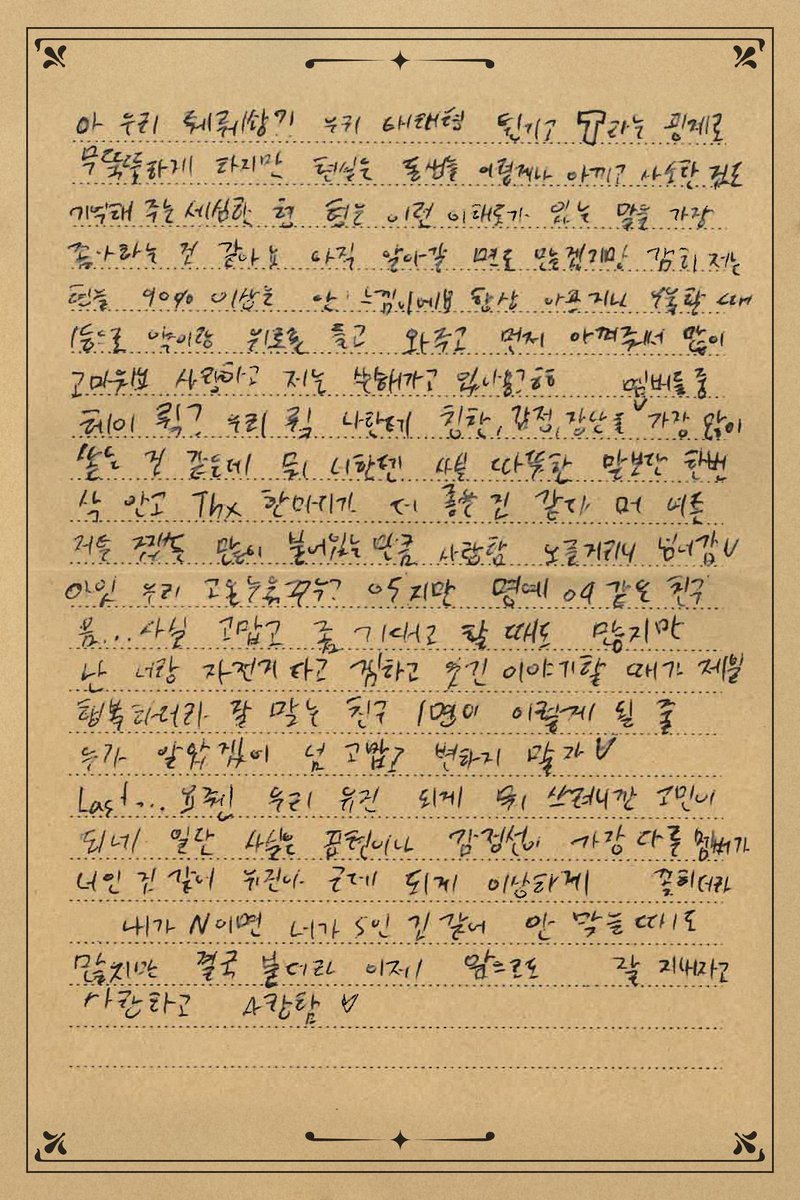 아 우리 우리 태태형 T라는 핑계로
무뚝뚝하게 하지만 현실은 동생들 이렇게나 아끼고 사소한 것도
기억해 주는 세심한 형 형은 이런 이태도가 있는 말을 가장
좋아라하는 것 같아요 아직 알아갈 면도 많겠지만 감히 저는
형을 90% 이상은 안 느낌이에요 항상 아프거나 우울할 때
1등으로 약이랑 위로를 들고 와주고 먼저 아껴줘서 많이
고마워요 사랑하고 저는 멤버들 중
헤이 릭? 우리 릭 나한테 칭찬, 감정, 장난을 가장 많이
쏟는 것 같은데 뭐 너한텐 사실 따뜻한 말보단 한번
싹 안고 Thx 한마디가 더 좋을 것 같다 머 너는
저를 많이 붙어있는 만큼 사랑함 오글거리니 넘어감 V
아임 우리 05지만 명예 04 같은 친구
음... 사실 고맙고 좀 기대고 할 때도 많지만
난 너랑 자전거 타고 짐하고 웃긴 이야기할 때가 제일
행복하더라 잘 맞는 친구 1명이 이렇게 될 줄
누가 알았겠어 넘 고맙고 변하지 말자 V
Last... 우리 유진 되게 뭐 쓰려니깐 고민이
되네 일단 사실은 감정선이 가장 다를 멤버가
너인 것 같어 유진아 근데 되게 이상하게 꽂히더라
내가 N이면 너가 S인 것 같어 안 맞을 때도
많지만 결국 붙더라 이제 앞으로도 잘 지내자고
사랑하고 사랑함 V